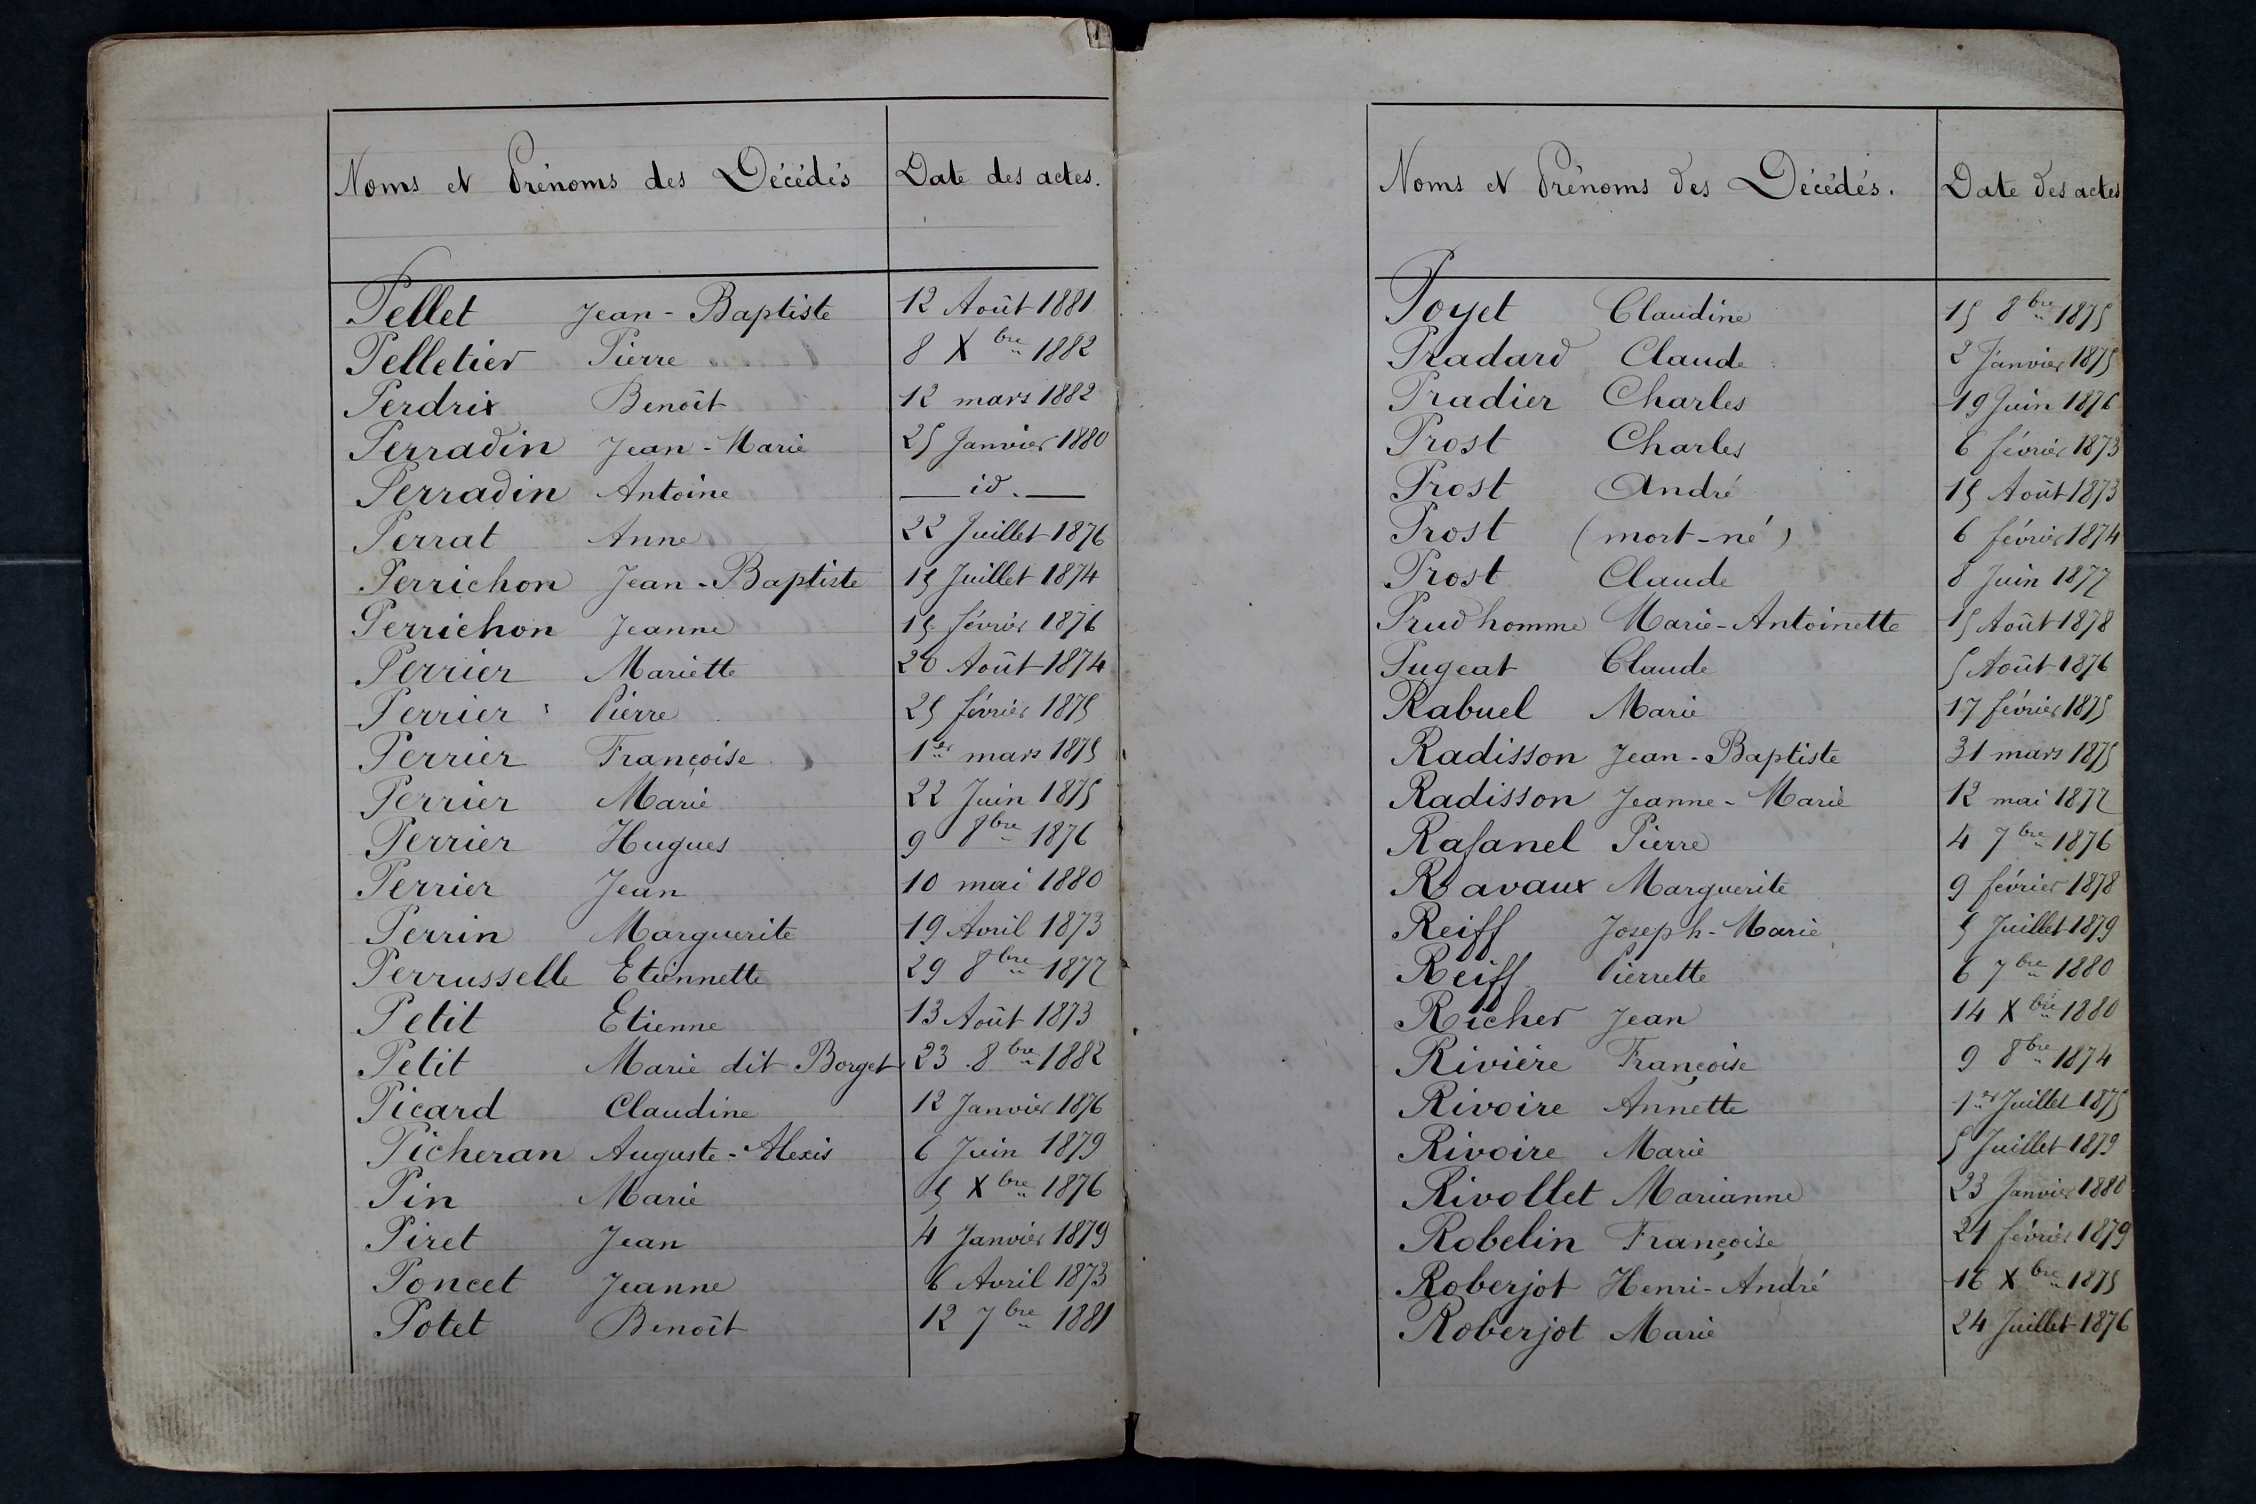 Noms et Prénoms des Décédés Date des actes.
Pellet Jean-Baptiste 12 Août 1881
Pelletier Pierre 8 Xbre 1882
Perdrix Benoît 12 mars 1882
Perradin Jean-Marie 25 Janvier 1880
Perradin Antoine — id. —
Perrat Anne 22 Juillet 1876
Perrichon Jean-Baptiste 15 Juillet 1874
Perrichon Jeanne 15 février 1876
Perrier Mariette 20 Août 1874
Perrier Pierre 25 février 1875
Perrier Françoise 1er mars 1875
Perrier Marie 22 Juin 1875
Perrier Hugues 9 8bre 1876
Perrier Jean 10 mai 1880
Perrin Marguerite 19 Avril 1873
Perrusselle Etiennette 29 8bre 1877
Petit Etienne 13 Août 1873
Petit Marie dit Borget 23 8bre 1882
Picard Claudine 12 Janvier 1876
Picheran Auguste-Alexis 6 Juin 1879
Pin Marie 5 Xbre 1876
Piret Jean 4 Janvier 1879
Poncet Jeanne 6 Avril 1873
Potet Benoît 12 7bre 1881
Noms et Prénoms des Décédés. Date des actes
Poyet Claudine 15 8bre 1875
Pradard Claude 2 Janvier 1875
Pradier Charles 19 Juin 1876
Prost Charles 6 février 1873
Prost André 15 Août 1873
Prost (mort-né) 6 février 1874
Prost Claude 8 Juin 1877
Prudhomme Marie-Antoinette 15 Août 1878
Pugeat Claude 5 Août 1876
Rabuel Marie 17 février 1875
Radisson Jean-Baptiste 31 mars 1875
Radisson Jeanne-Marie 12 mai 1877
Rafanel Pierre 4 7bre 1876
Ravaux Marguerite 9 février 1878
Reiff Joseph-Marie 5 Juillet 1879
Reiff Pierrette 6 7bre 1880
Richer Jean 14 Xbre 1880
Rivière Françoise 9 8bre 1874
Rivoire Annette 1er Juillet 1875
Rivoire Marie 5 Juillet 1879
Rivollet Marianne 23 Janvier 1880
Robelin Françoise 21 février 1879
Roberjot Henri-André 16 Xbre 1875
Roberjot Marie 24 Juillet 1876